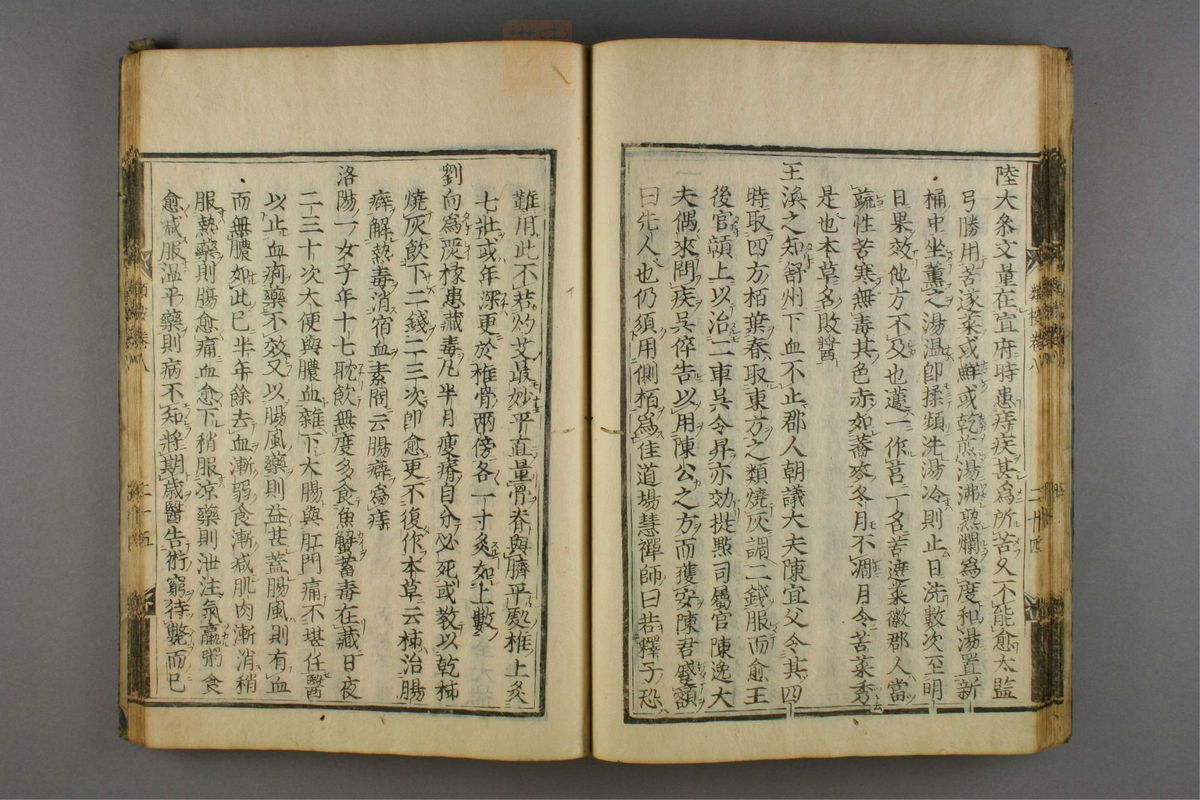 陸大參文量在宜府時患痔疾甚爲所苦久不能愈太監
弓勝用苦遂菜或鮮或乾煎湯沸熟爛爲度和湯置新
桶中坐薫之湯温卽揉頻洗湯冷則止日洗數次至明
日果效他方不及也蘧一作苣一名苦遮菜徽郡人當
蔬性苦寒無毒其色赤如蕎麥冬月不凋月令苦菜秀
是也本草名敗醬
王渙之知舒州下血不止郡人朝議大夫陳宜父令其四
時取四方栢葉春取東方之類燒灰調二錢服而愈王
後官頴上以治二車呉令昇亦効提點司屬官陳逸大
夫偶來問疾呉倅告以用陳公之方而獲安陳君蹙額
曰先人也仍須用側栢爲佳道場慧禪師曰若釋子恐
難用此不若灼艾最妙平直量骨脊與臍平處椎上灸
七壯或年深更於椎骨兩傍各一寸灸如上數
劉向爲嚴椽患藏毒凡半月痩瘠自分必死或教以乾柿
燒灰飲下二錢二三次卽愈更不復作本草云柿治腸
癖解熱毒消宿血素問云腸癖爲痔
洛陽一女子年十七耽飲無度多食魚蟹蓄毒在藏日夜
二三十次大便與膿血雜下大腸與肛門痛不堪任醫
以止血痢藥不效又以腸風藥則益甚蓋腸風則有血
而無膿如此已半年餘去血漸弱食漸減肌肉漸消稍
服熱藥則腸愈痛血愈下稍服凉藥則泄注氣羸粥食
愈减服温平藥則病不知將期歲醫告術窮待斃而已
類按卷八
二十五